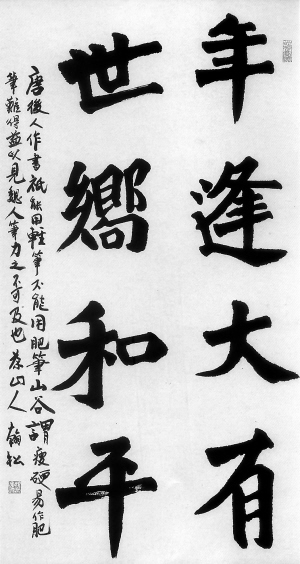 年逢大有
世嚮和平
唐後人作書祇能用輕筆不能用肥筆山谷謂瘦硬易作肥
筆難得益以見魏人筆力之不可及也 茶山人